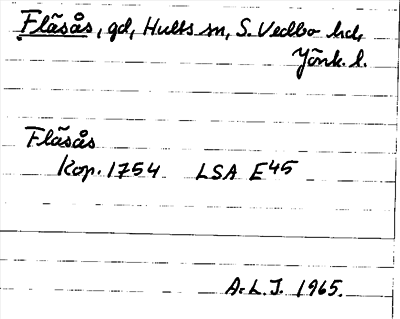 Fläsås, gd, Hults sn, S. Vedbo hd,
Jönk. l.
Fläsås
Kop. 1754 LSA E45
A. L. J. 1965.